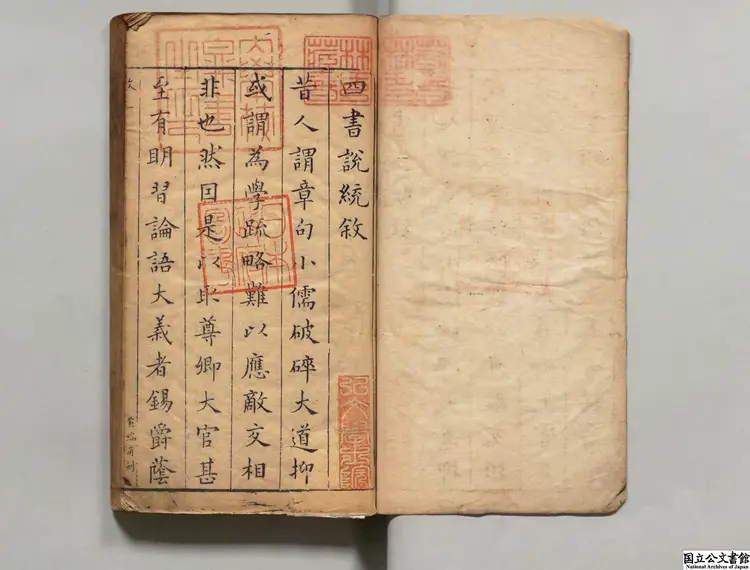 四書說統敘
昔人謂章句小儒破碎大道抑
或謂為學疏略難以應敵交相
非也然因是以取尊卿大官甚
至有明習論語大義者錫爵蔭
弘文學士院
国立公文書館
National Archives of Japan